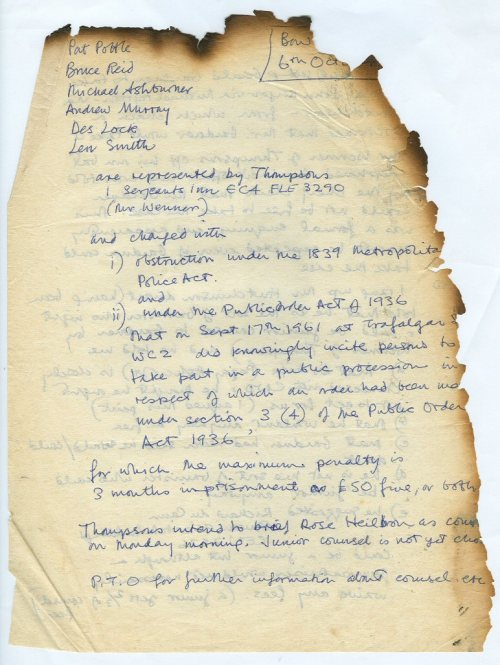 Pat Pottle
Bow
Bruce Reid
6th Oc
Michael Ashburner
Andrew Murray
Des Lock
Len Smith
are represented by Thompsons
1 Serjeants Inn EC4 FLE 3290
(Mr Wenner)
and charged with
i) obstruction under the 1839 Metropolita
Police Act.
and
ii) under the Public Order Act of 1936
that on Sept 17th 1961 at Trafalgar S
WC2 did knowingly incite persons to
take part in a public procession in
respect of which an order had been ma
under section 3 (4) of the Public Order
Act 1936,
for which the maximum penalty is
3 months imprisonment or £50 fine, or both
Thompsons intend to brief Rose Heilbron as coun
on Monday morning. Junior counsel is not yet cho
P.T.O for further information about counsel etc